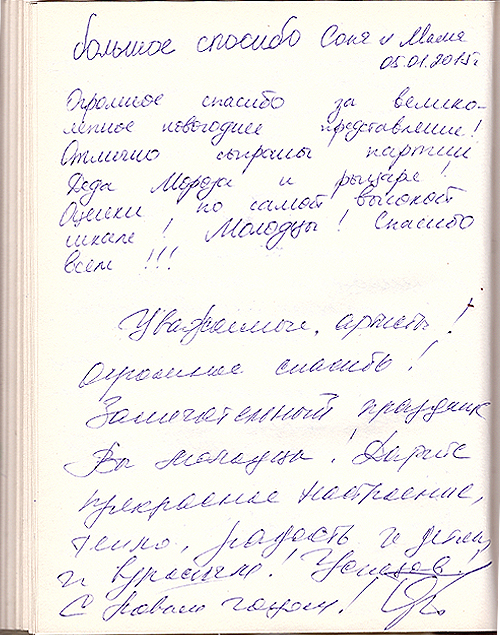 большое спасибо Соня и Мама
05.01.2015г
Огромное спасибо за велико-
лепное новогоднее представление!
Отлично сыграны партии
Деда Мороза и рыцаря!
Оценки по самой высокой
шкале! Молодцы! Спасибо
всем!!!
Уважаемые, артисты!
Огромное спасибо!
Замечательный праздник
Вы молодцы! Дарите
прекрасное настроение,
тепло, радость и детям
и взрослым! Успехов!
С Новым годом!